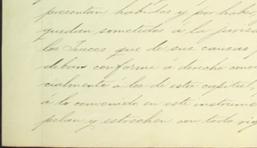 presentan habidas y por haber
quedan sometidos á la jurisd
los Jueces que de sus causas
deban conforme á derecho conoc
cialmente á los de esta capital,
á lo convenido en este instrume
pelan y estrechen con todo rig